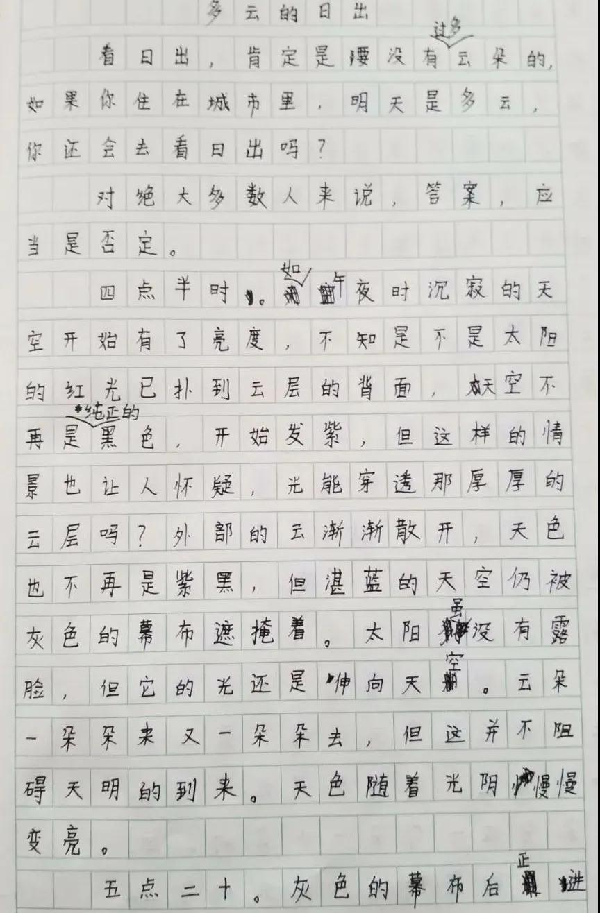 多云的日出
看日出，肯定是要没有过多云朵的，
如果你住在城市里，明天是多云，
你还会去看日出吗？
对绝大多数人来说，答案，应
当是否定。
四点半时。如午夜时沉寂的天
空开始有了亮度，不知是不是太阳
的红光已扑到云层的背面，天空不
再是纯正的黑色，开始发紫，但这样的情
景也让人怀疑，光能穿透那厚厚的
云层吗？外部的云渐渐散开，天色
也不再是紫黑，但湛蓝的天空仍被
灰色的幕布遮掩着。太阳虽没有露
脸，但它的光还是伸向天空。云朵
一朵朵来又一朵朵去，但这并不阻
碍天明的到来。天色随着光阴慢慢
变亮。
五点二十。灰色的幕布后正进